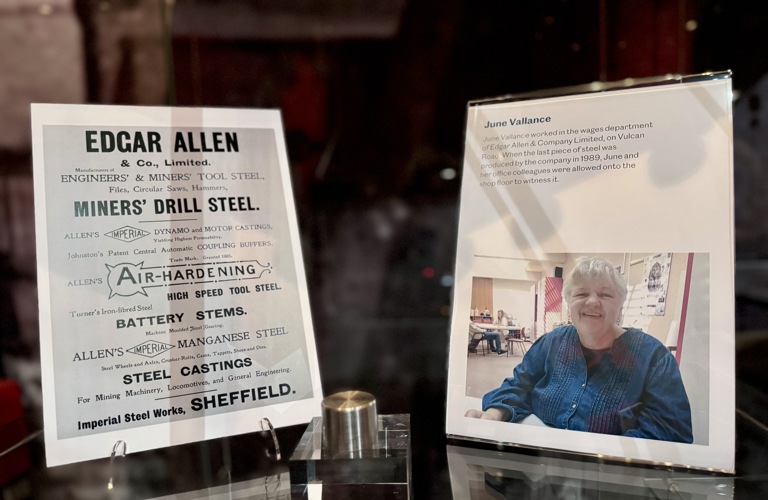 EDGAR ALLEN
& Co., Limited.
Manufacturers of
ENGINEERS' & MINERS' TOOL STEEL,
Files, Circular Saws, Hammers,
MINERS' DRILL STEEL.
ALLEN'S IMPERIAL DYNAMO and MOTOR CASTINGS,
Yielding Highest Permeability.
Johnston's Patent Central Automatic COUPLING BUFFERS.
Trade Mark.
ALLEN'S AIR-HARDENING
HIGH SPEED TOOL STEEL.
Turner's Iron-fibred Steel
BATTERY STEMS.
Machine Moulded Steel Gearing.
ALLEN'S IMPERIAL MANGANESE STEEL
Steel Wheels and Axles, Crusher Rolls, Cams, Tappets, Shoes and Dies.
STEEL CASTINGS
For Mining Machinery, Locomotives, and General Engineering.
Imperial Steel Works, SHEFFIELD.
June Vallance
June Vallance worked in the wages department
of Edgar Allen & Company Limited, on Vulcan
Road. When the last piece of steel was
produced by the company in 1989, June and
her office colleagues were allowed onto the
shop floor to witness it.